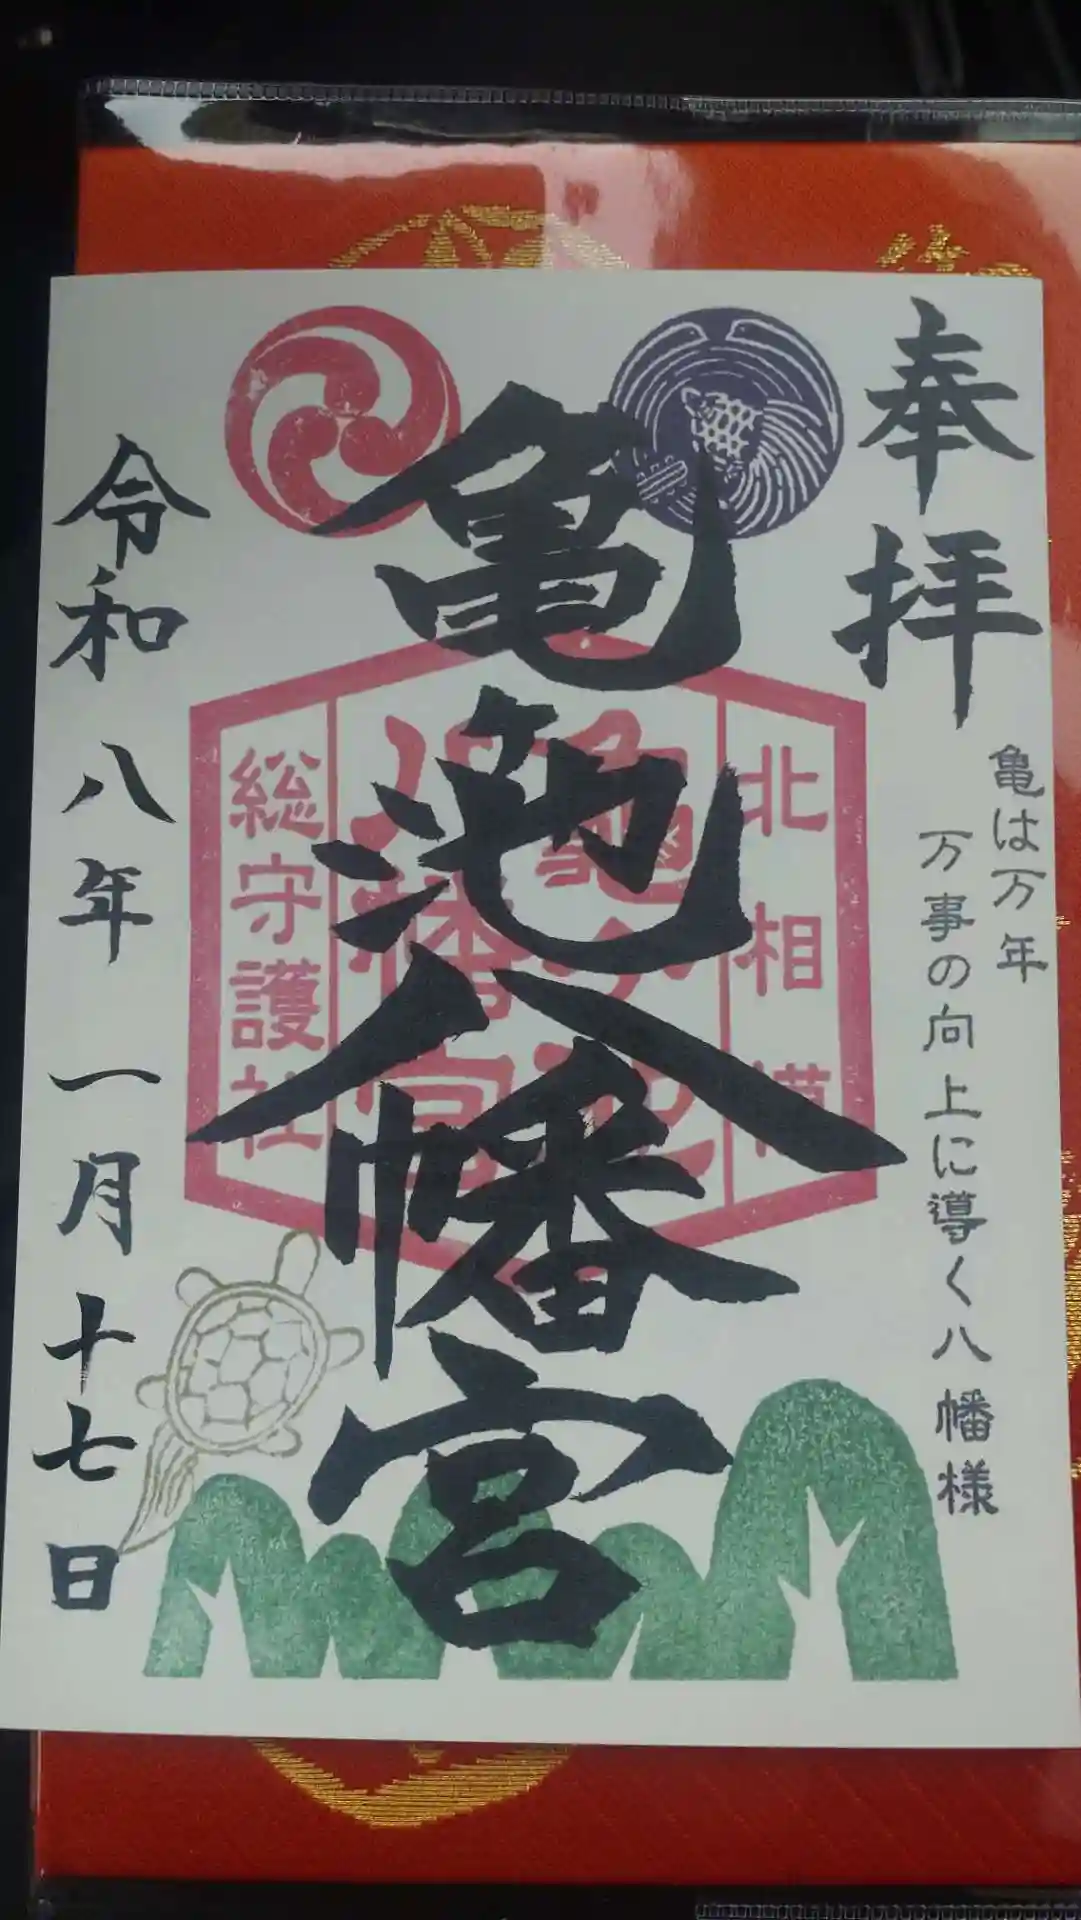 奉拝
亀は万年
万事の向上に導く八幡様
亀池八幡宮
北相模
亀ヶ池
八幡宮
総守護社
令和八年一月十七日